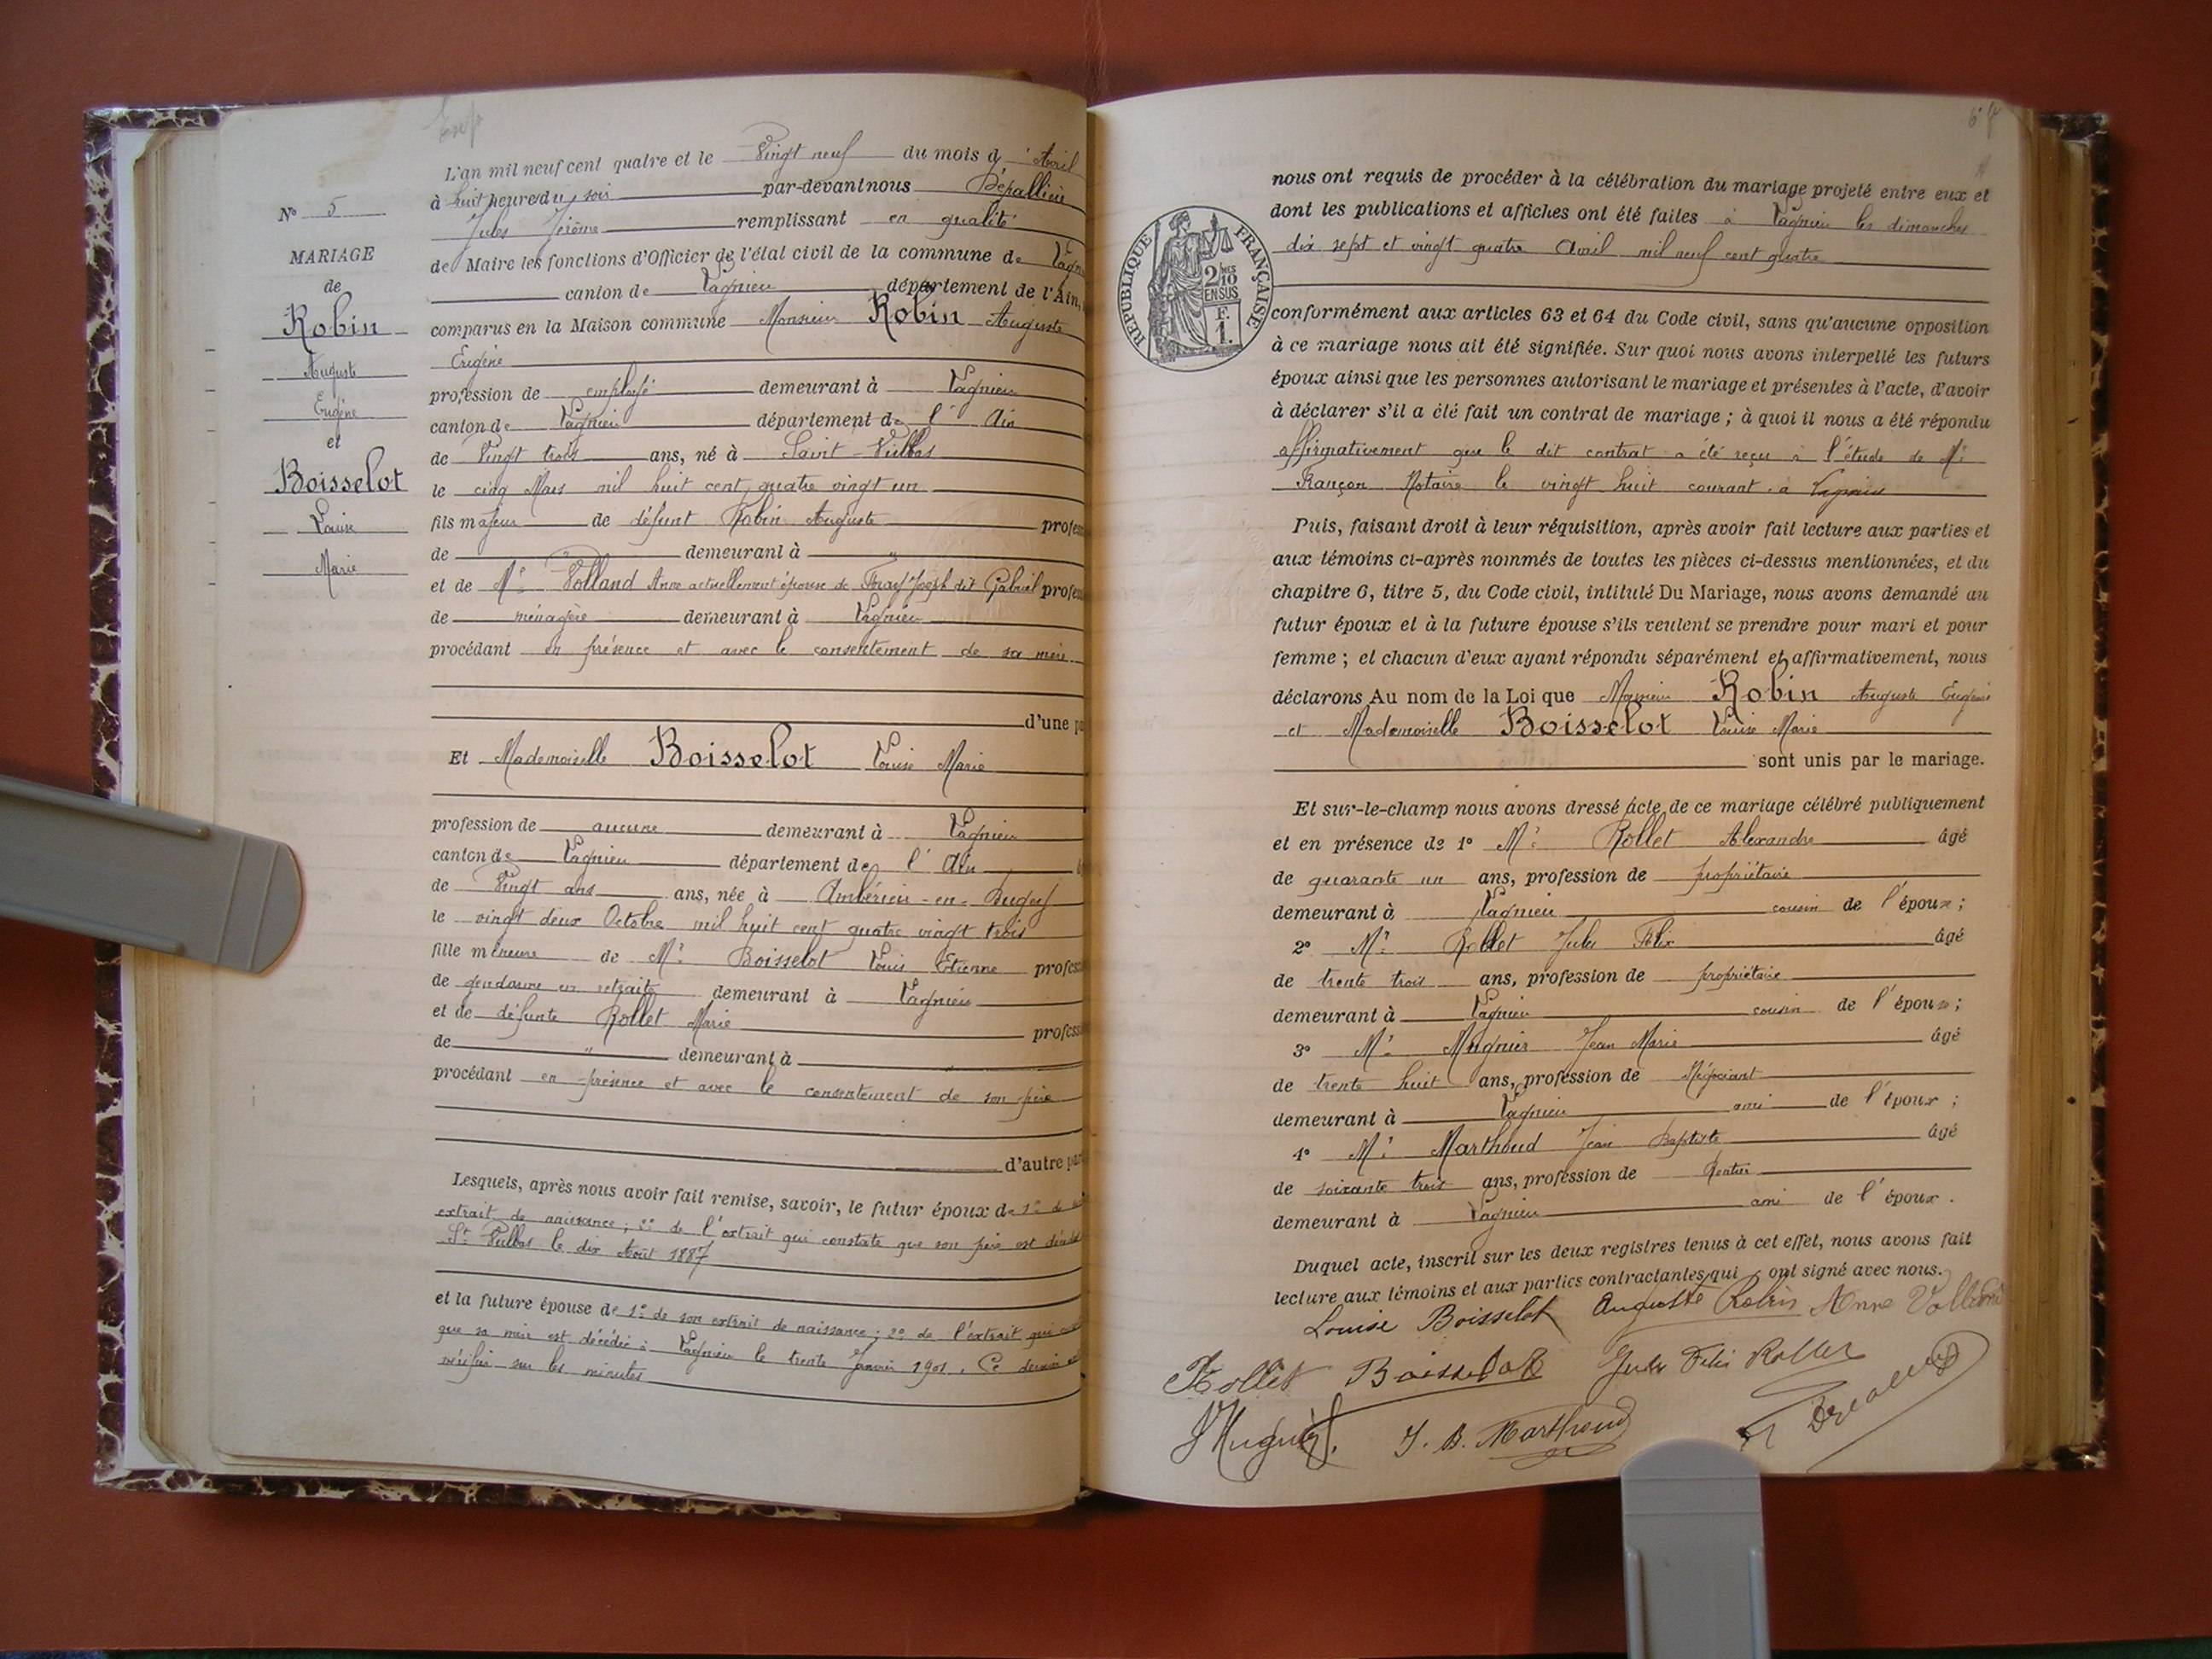 L'an mil neuf cent quatre et le Vingt neuf du mois d'Avril
à huit heure du soir par-devant nous Dépallière
Jules Jérôme remplissant en qualité
de Maire les fonctions d'Officier de l'état civil de la commune de
canton de Lagnieu département de l'Ain,
comparus en la Maison commune Monsieur Robin Auguste
Eugène
profession de employé demeurant à Lagnieu
canton de Lagnieu département de l'Ain
de Vingt trois ans, né à Saint-Vulbas
le cinq Mars mil huit cent quatre vingt un
fils majeur de défunt Robin Auguste profes
de " demeurant à "
et de Me Volland Anne actuellement épouse de Joseph dit Gabriel profes
de ménagère demeurant à Lagnieu
procédant en présence et avec le consentement de sa mère
d'une pa
Et Mademoiselle Boisselot Louise Marie
profession de aucune demeurant à Lagnieu
canton de Lagnieu département de l'Ain
de Vingt ans ans, née à Ambérieu-en-Bugey
le vingt deux Octobre mil huit cent quatre vingt trois
fille mineure de Mr Boisselot Louis Etienne profess
de gendarme en retraite demeurant à Lagnieu
et de défunte Rollet Marie profess
de " demeurant à "
procédant en présence et avec le consentement de son père
d'autre par
Lesquels, après nous avoir fait remise, savoir, le futur époux de 1° de
extrait de naissance; 2° de l'extrait qui constate que son père est décédé
St Vulbas le dix Août 1887
et la future épouse de 1° de son extrait de naissance; 2° de l'extrait qui
que sa mère est décédée à Lagnieu le trente Janvier 1901. Ce dernier
vérifié sur les minutes
N° 5
MARIAGE
de
Robin
Auguste
Eugène
et
Boisselot
Louise
Marie
RÉPUBLIQUE FRANÇAISE
2/10
EN SUS
F.
1.
nous ont requis de procéder à la célébration du mariage projeté entre eux et
dont les publications et affiches ont été faites à Lagnieu les dimanches
dix sept et vingt quatre Avril mil neuf cent quatre
conformément aux articles 63 et 64 du Code civil, sans qu'aucune opposition
à ce mariage nous ait été signifiée. Sur quoi nous avons interpellé les futurs
époux ainsi que les personnes autorisant le mariage et présentes à l'acte, d'avoir
à déclarer s'il a été fait un contrat de mariage; à quoi il nous a été répondu
affirmativement que le dit contrat a été reçu à l'étude de Me
Rançon Notaire le vingt huit courant à Lagnieu
Puis, faisant droit à leur réquisition, après avoir fait lecture aux parties et
aux témoins ci-après nommés de toutes les pièces ci-dessus mentionnées, et du
chapitre 6, titre 5, du Code civil, intitulé Du Mariage, nous avons demandé au
futur époux et à la future épouse s'ils veulent se prendre pour mari et pour
femme; et chacun d'eux ayant répondu séparément et affirmativement, nous
déclarons Au nom de la Loi que Monsieur Robin Auguste Eugène
et Mademoiselle Boisselot Louise Marie
sont unis par le mariage.
Et sur-le-champ nous avons dressé acte de ce mariage célébré publiquement
et en présence de 1° Mr Rollet Alexandre âgé
de quarante un ans, profession de propriétaire
demeurant à Lagnieu cousin de l'époux;
2° Mr Rollet Jules Félix âgé
de trente trois ans, profession de propriétaire
demeurant à Lagnieu cousin de l'époux;
3° Mr Mugnier Jean Marie âgé
de trente huit ans, profession de Négociant
demeurant à Lagnieu ami de l'époux;
4° Mr Marthoud Jean Baptiste âgé
de soixante trois ans, profession de Rentier
demeurant à Lagnieu ami de l'époux.
Duquel acte, inscrit sur les deux registres tenus à cet effet, nous avons fait
lecture aux témoins et aux parties contractantes qui ont signé avec nous.
Louise Boisselot Auguste Robin Anne Volland
Rollet Boisselot Jules Félix Rollet
J. B. Marthoud